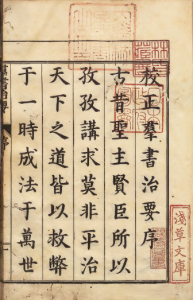 校正羣書治要序
古昔聖主賢臣所以
孜孜講求莫非平治
天下之道皆以救弊
于一時成法于萬世
淺草文庫